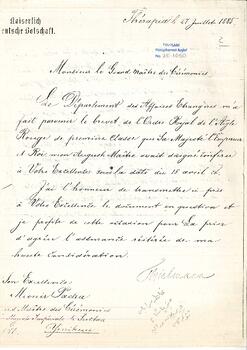 Kaiserlich
Deutsche Botschaft.
Thérapia, le 27 Juillet 1885
Monsieur le Grand Maître des Cérémonies
Le Département des Affaires Etrangères m'a
fait parvenir le brevet de l'Ordre Royal de l'Aigle
Rouge de première classe que Sa Majesté l'Empereur
et Roi mon Auguste Maître avait daigné conférer
à Votre Excellence sous la date du 18 avril
J'ai l'honneur de transmettre ci près
à Votre Excellence le document en question et
je profite de cette occasion pour La prier
d'agréer l'assurance réitérée de ma
haute considération.
Son Excellence
Munir Pacha
Maître des Cérémonies